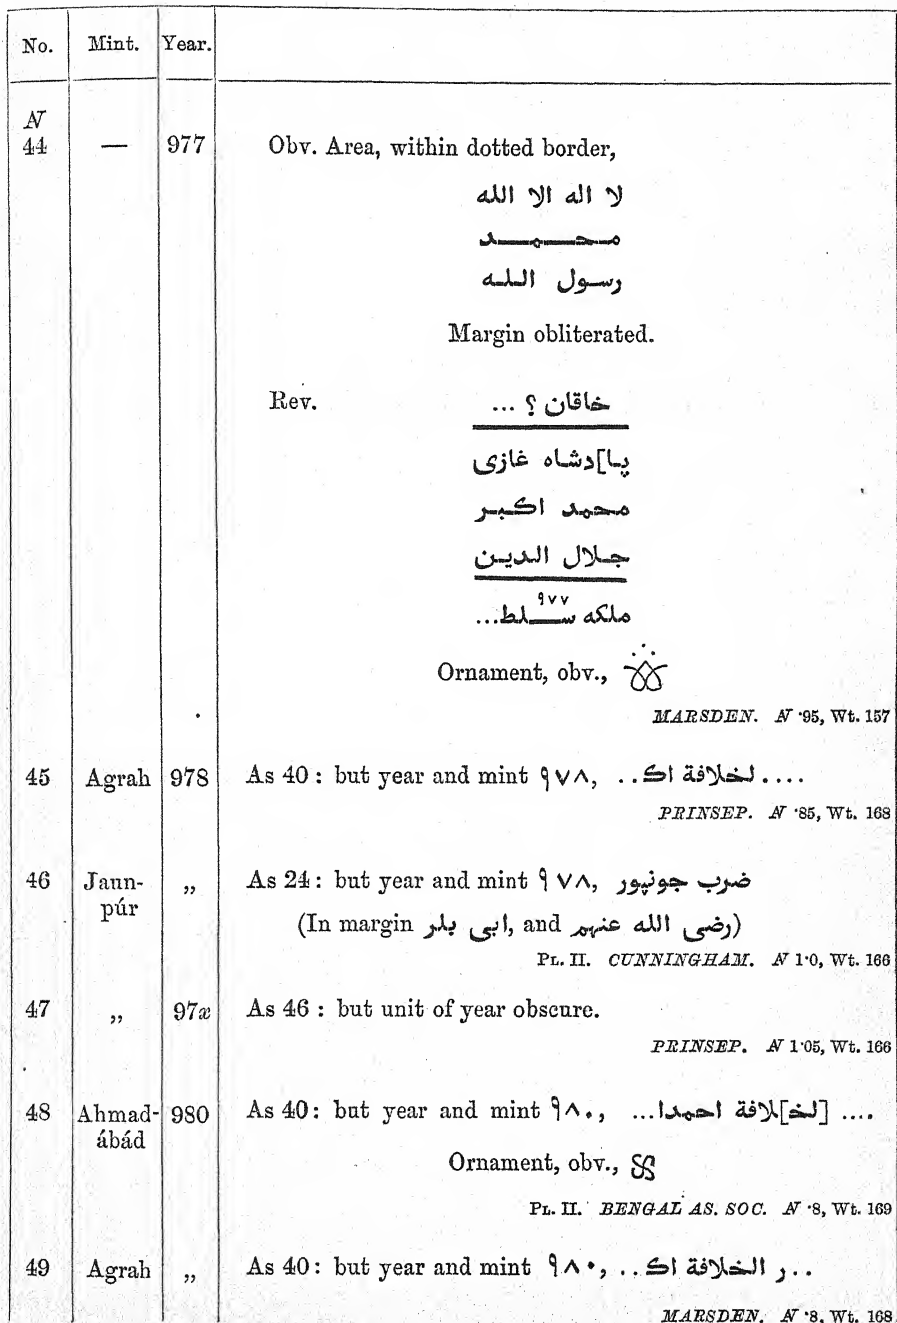 No. Mint. Year.
N
44 — 977 Obv. Area, within dotted border,
لا اله الا الله
محمد
رسول الله
Margin obliterated.
Rev. خاقان ؟ ...
پا]دشاه غازى
محمد اكبر
جلال الدين
٩٧٧
ملكه سلط...
Ornament, obv.,
MARSDEN. N ·95, Wt. 157
45 Agrah 978 As 40 : but year and mint ٩٧٨, ....لخلافة اك..
PRINSEP. N ·85, Wt. 168
46 Jaun- „ As 24 : but year and mint ٩٧٨, ضرب جونپور
púr (In margin ابى بلر, and رضى الله عنهم)
PL. II. CUNNINGHAM. N 1·0, Wt. 166
47 „ 97x As 46 : but unit of year obscure.
PRINSEP. N 1·05, Wt. 166
48 Ahmad- 980 As 40: but year and mint ٩٨٠, .... [لخ]لافة احمدا...
ábád
Ornament, obv.,
PL. II. BENGAL AS. SOC. N ·8, Wt. 169
49 Agrah „ As 40: but year and mint ٩٨٠, ..ر الخلافة اك..
MARSDEN. N ·8, Wt. 168